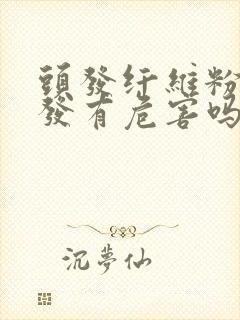 頭發纤維粉
發有危害吗
沉夢仙